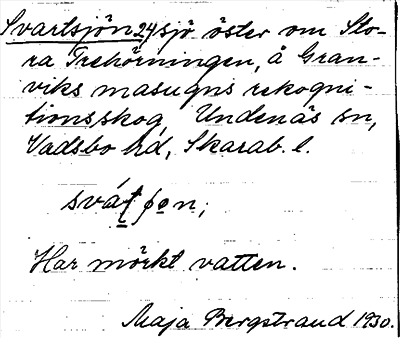 Svartsjön 24, sjö öster om Sto-
ra Trehörningen, å Gran-
viks masugns rekogni-
tionsskog, Undenäs sn,
Vadsbo hd, Skarab. l.
Har mörkt vatten.
Maja Bergstrand 1930.